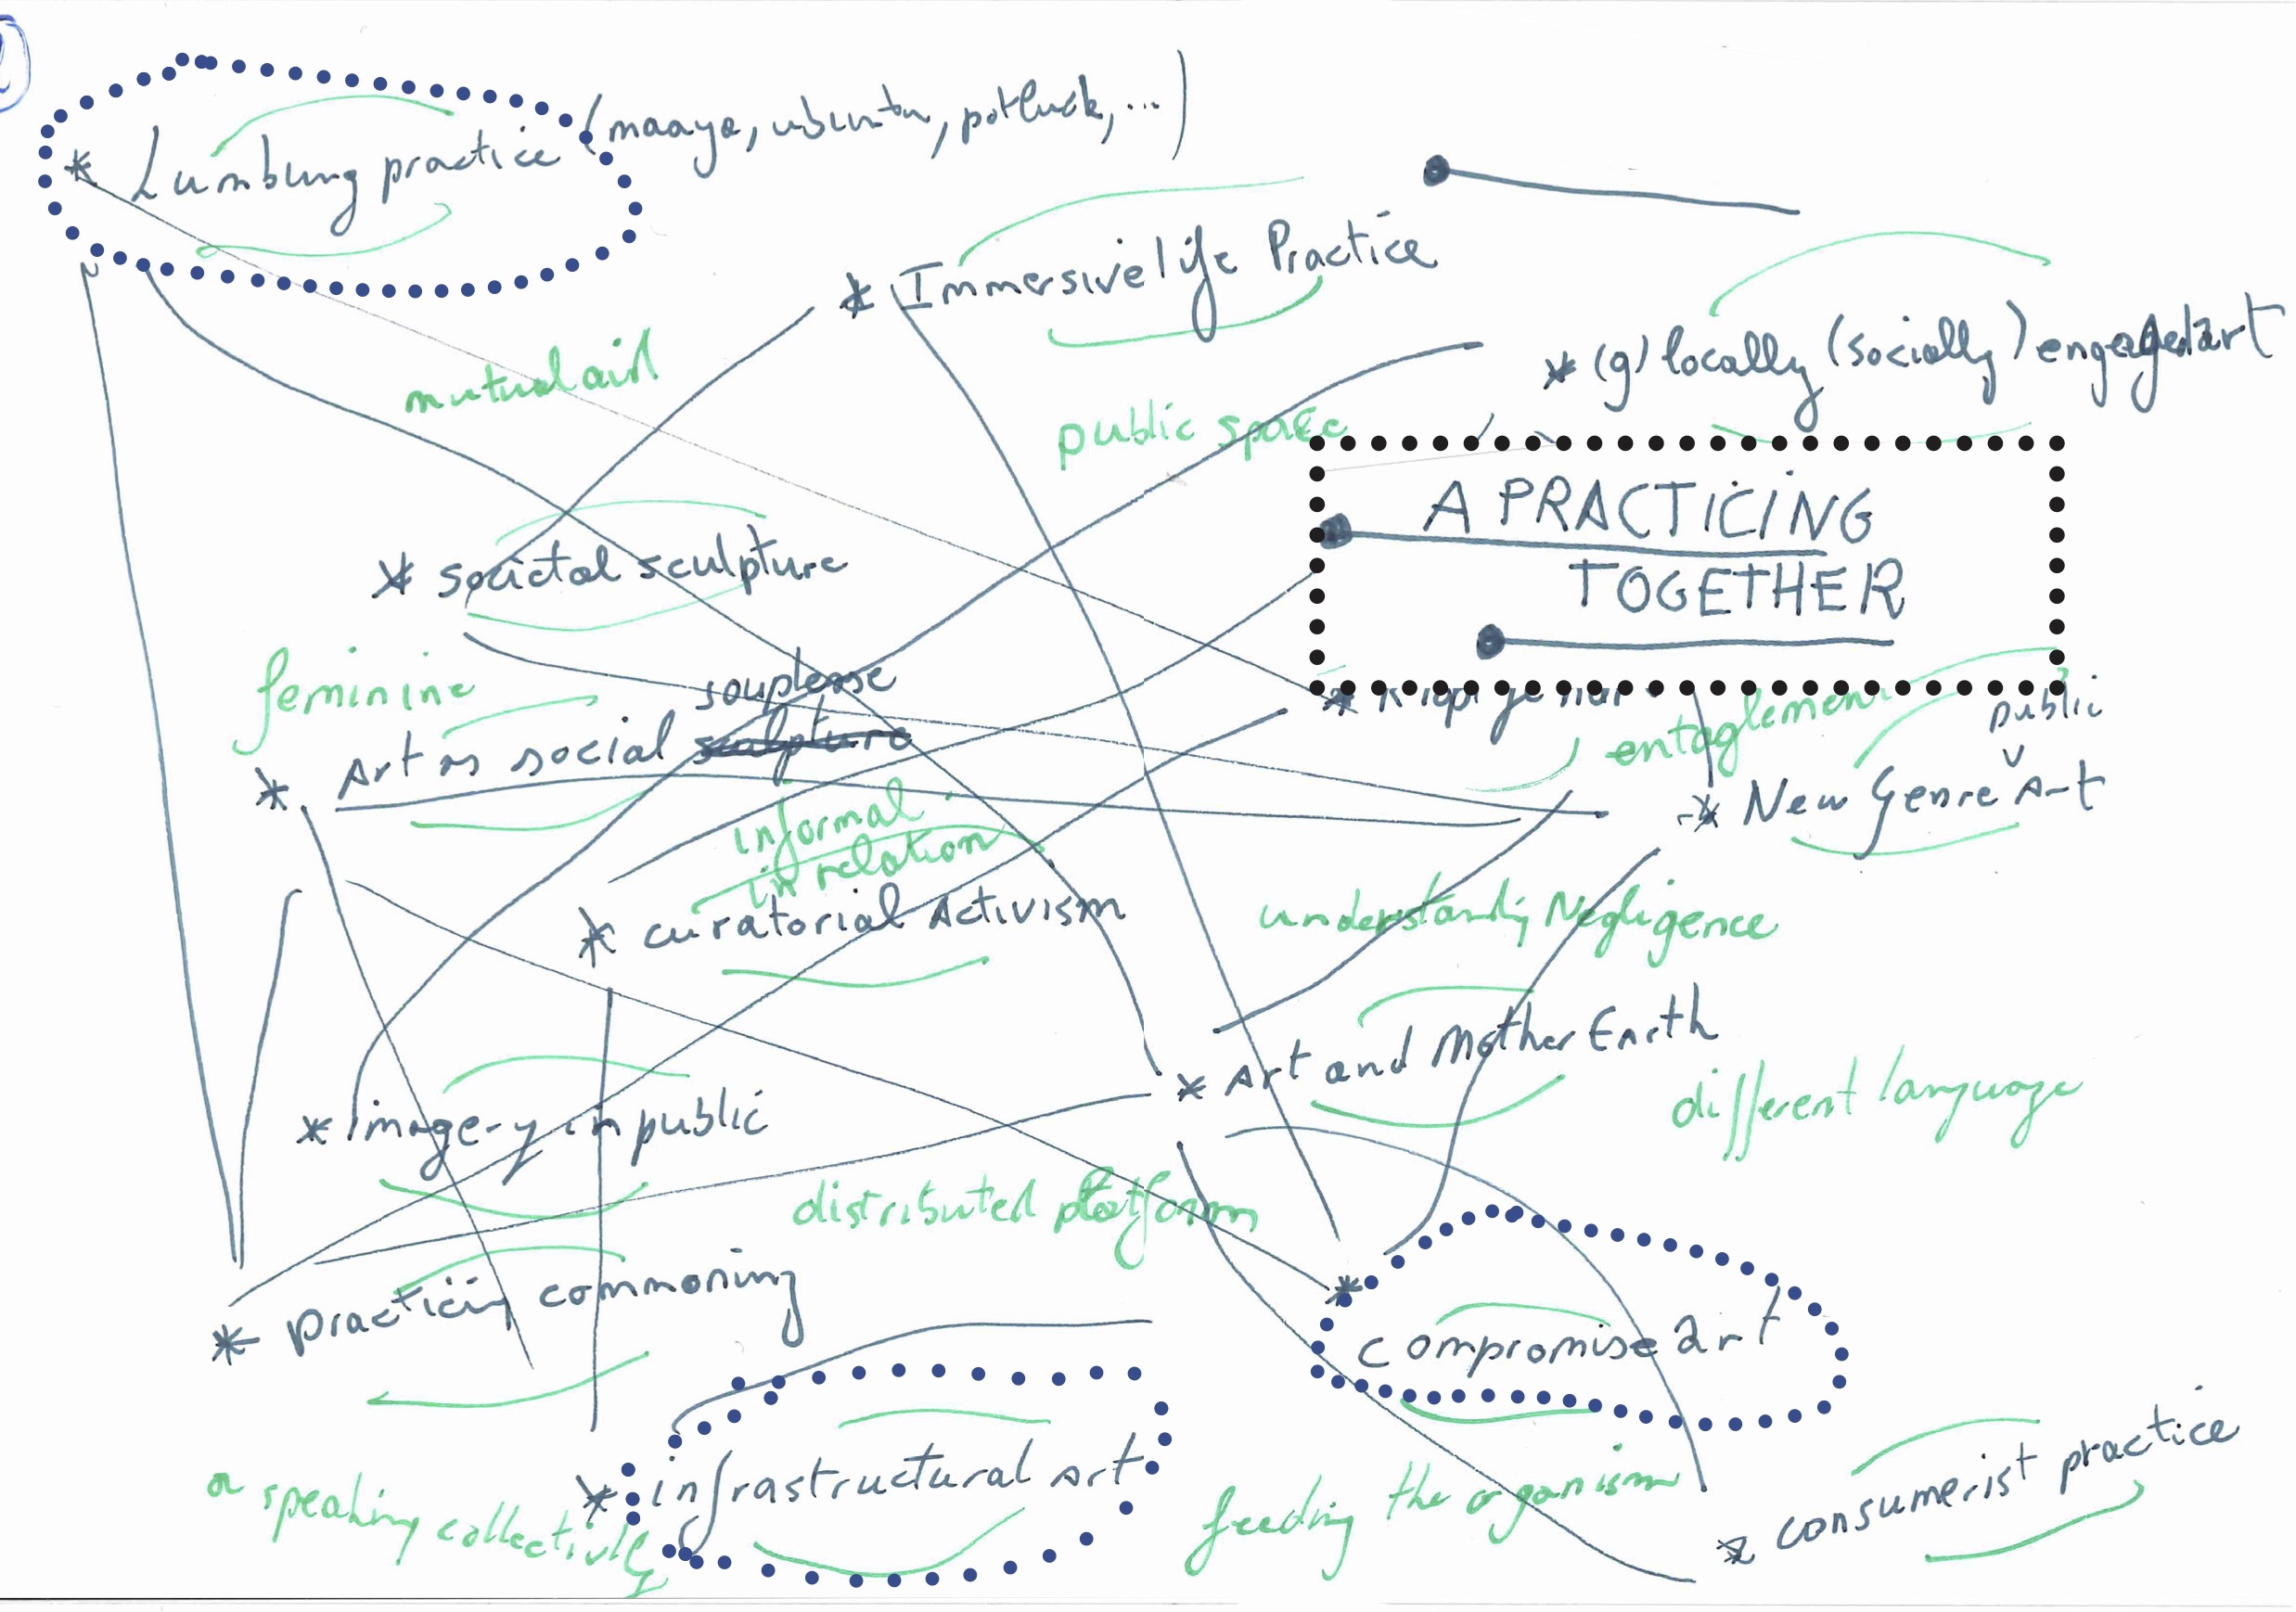 * Lumbung practice (maaya, ubuntu, potluck, ...)
* Immersive life Practice
* (g)locally (socially) engaged art
mutual aid
public space
A PRACTICING
TOGETHER
* societal sculpture
feminine
souplesse
* Art as social sculpture
entaglement
public
* New Genre Art
informal
in relation
* curatorial Activism
understandig Negligence
* Art and Mother Earth
different language
* imagery in public
distributed platform
* practicing commoning
* compromise art
* infrastructural art
a speaking collectively
feeding the organism
* consumerist practice